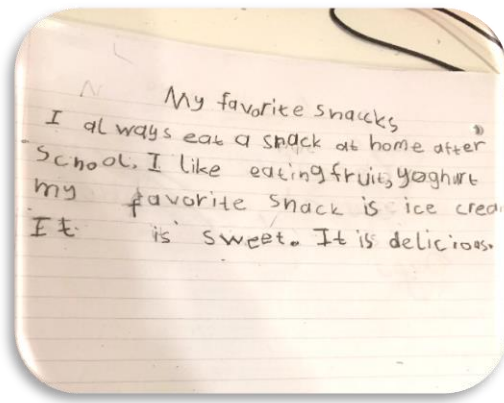 My favorite snaucks
I al ways eat a snack at home after
School. I like eating fruit, yoghurt
my favorite snack is ice crea
It is sweet. It is delicious.